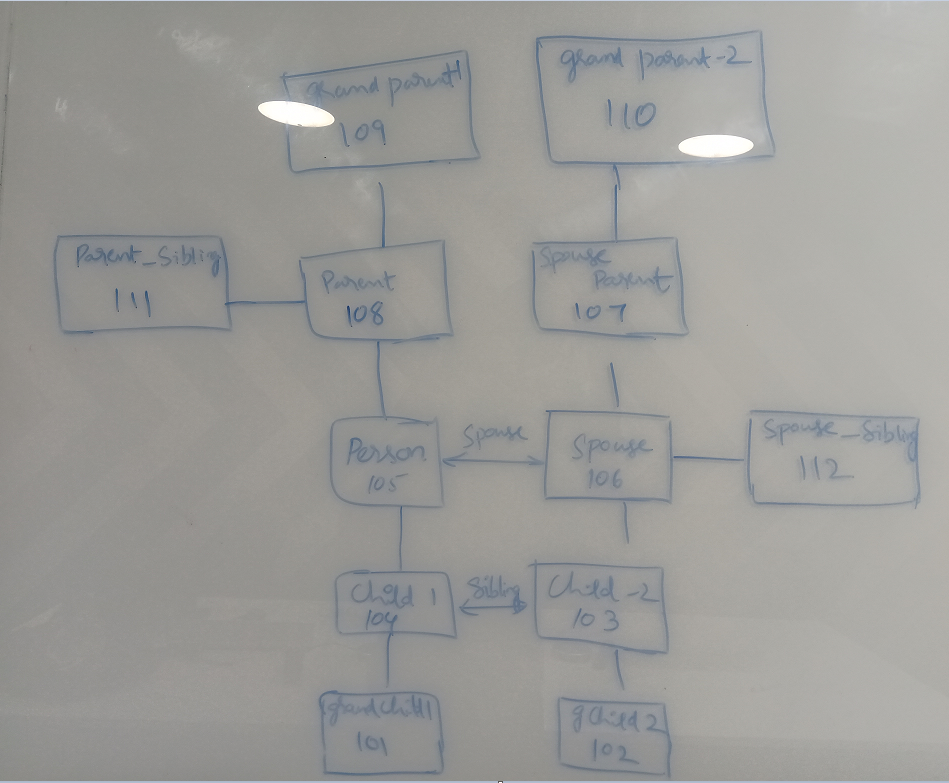 grand parent1
109
grand parent-2
110
Parent_Siblig
111
Parent
108
Spouse
Parent
107
Person
105
Spouse
Spouse
106
Spouse_Sibling
112
Child 1
104
Sibling
Child-2
103
grandchild1
101
gchild 2
102